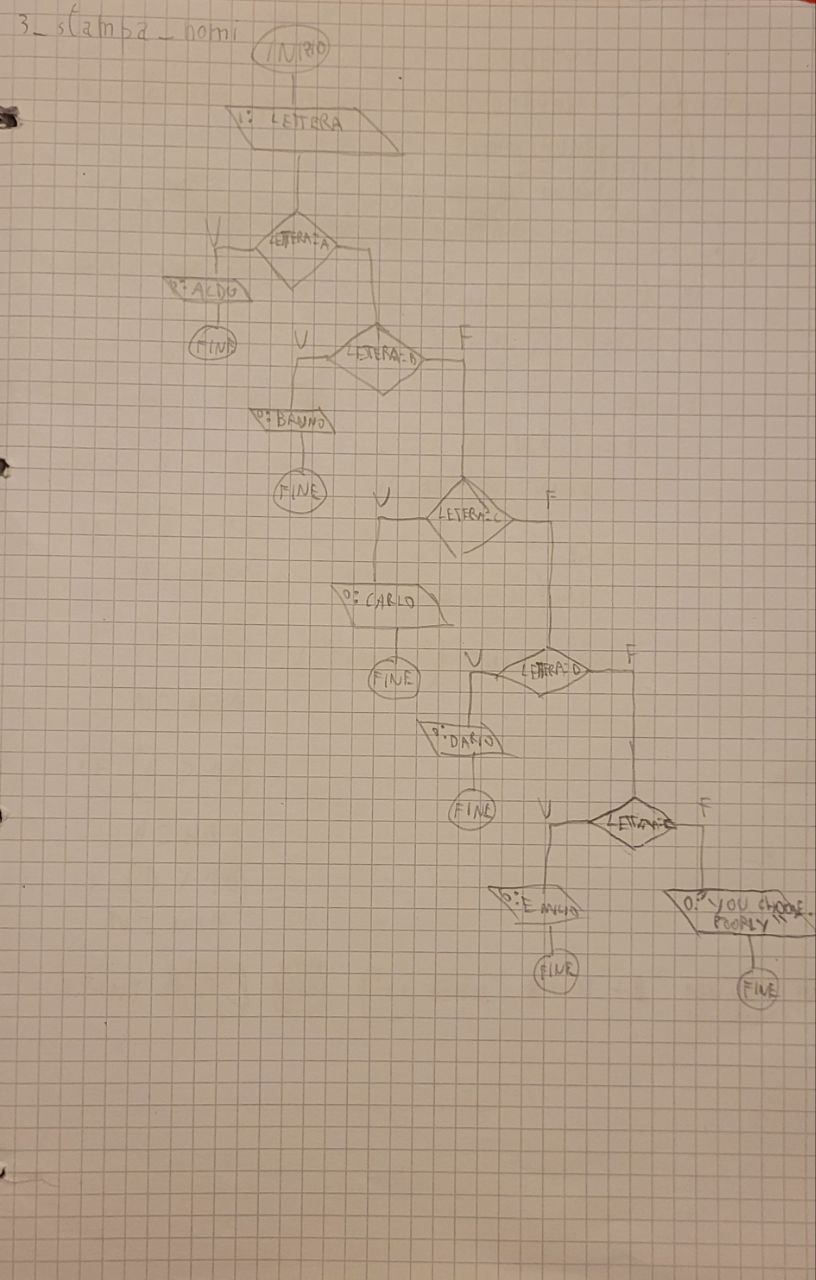 3_stampa_nomi
INIZIO
I: LETTERA
LETTERA=A
V
O: ALDO
FINE
LETERA=B
V
F
O: BRUNO
FINE
LETERA=C
V
F
O: CARLO
FINE
LETTERA=D
V
F
O: DARIO
FINE
V
F
O: EMILIO
O: "YOU CHOOSE
POORLY"
FINE
FINE